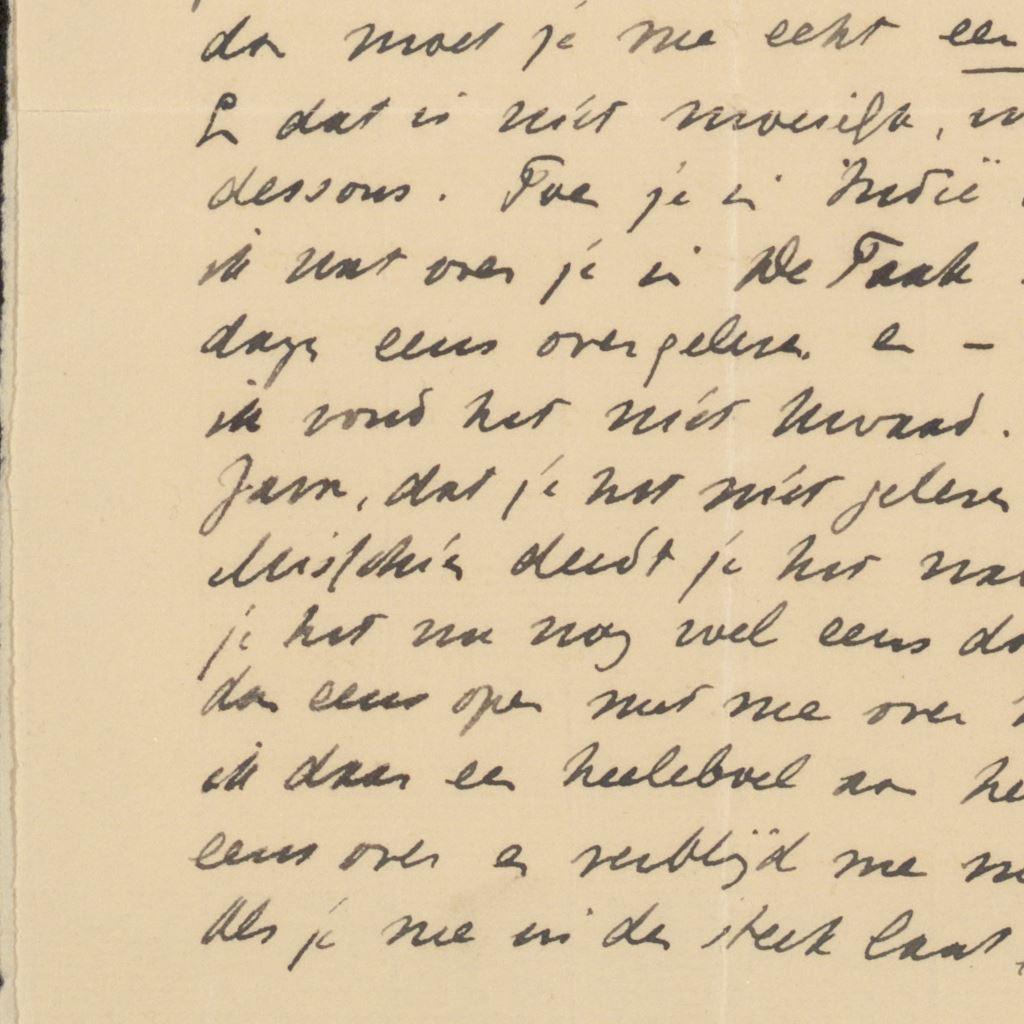 dan moet je me echt een
En dat is niet moeilijk,
dessous. Toen je in Indië
ik wat over je in De Taak
dagen eens overgelezen en –
ik vond het niet kwaad.
Java, dat je het niet gelezen
Misschien deedt je het
je het me nog wel eens
dan eens open met me over
ik daar een heeleboel aan
eens over en verblijd me
Als je me in den steek laat,